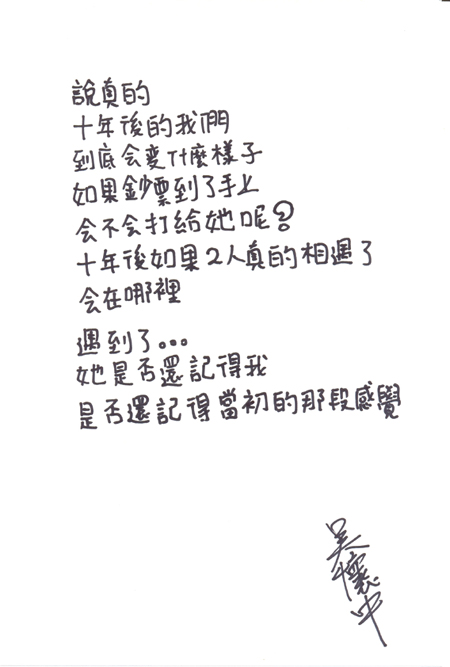 說真的
十年後的我們
到底会变什麼樣子
如果鈔票到了手上
会不会打給她呢?
十年後如果2人真的相遇了
会在哪裡
遇到了...
她是否還記得我
是否還記得當初的那段感覺
吴懷中